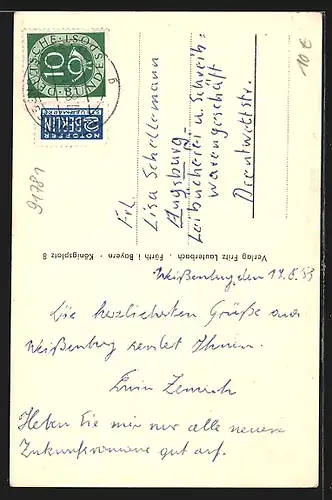 DEUTSCHE BUNDESPOST
10
NOTOPFER
2 BERLIN
STEUERMARKE
10 €
91781
Frl.
Lisa Schellermann
Augsburg
Leibücherei u. Schreib-
warengeschäft
Drentwettstr.
Verlag Fritz Lauterbach, Fürth i. Bayern · Königsplatz 8
Weißenburg, den 17.8.53
Die herzlichsten Grüße aus
Weißenburg sendet Ihnen
Heben Sie mir nur alle neuen
Zukunftsromane gut auf.